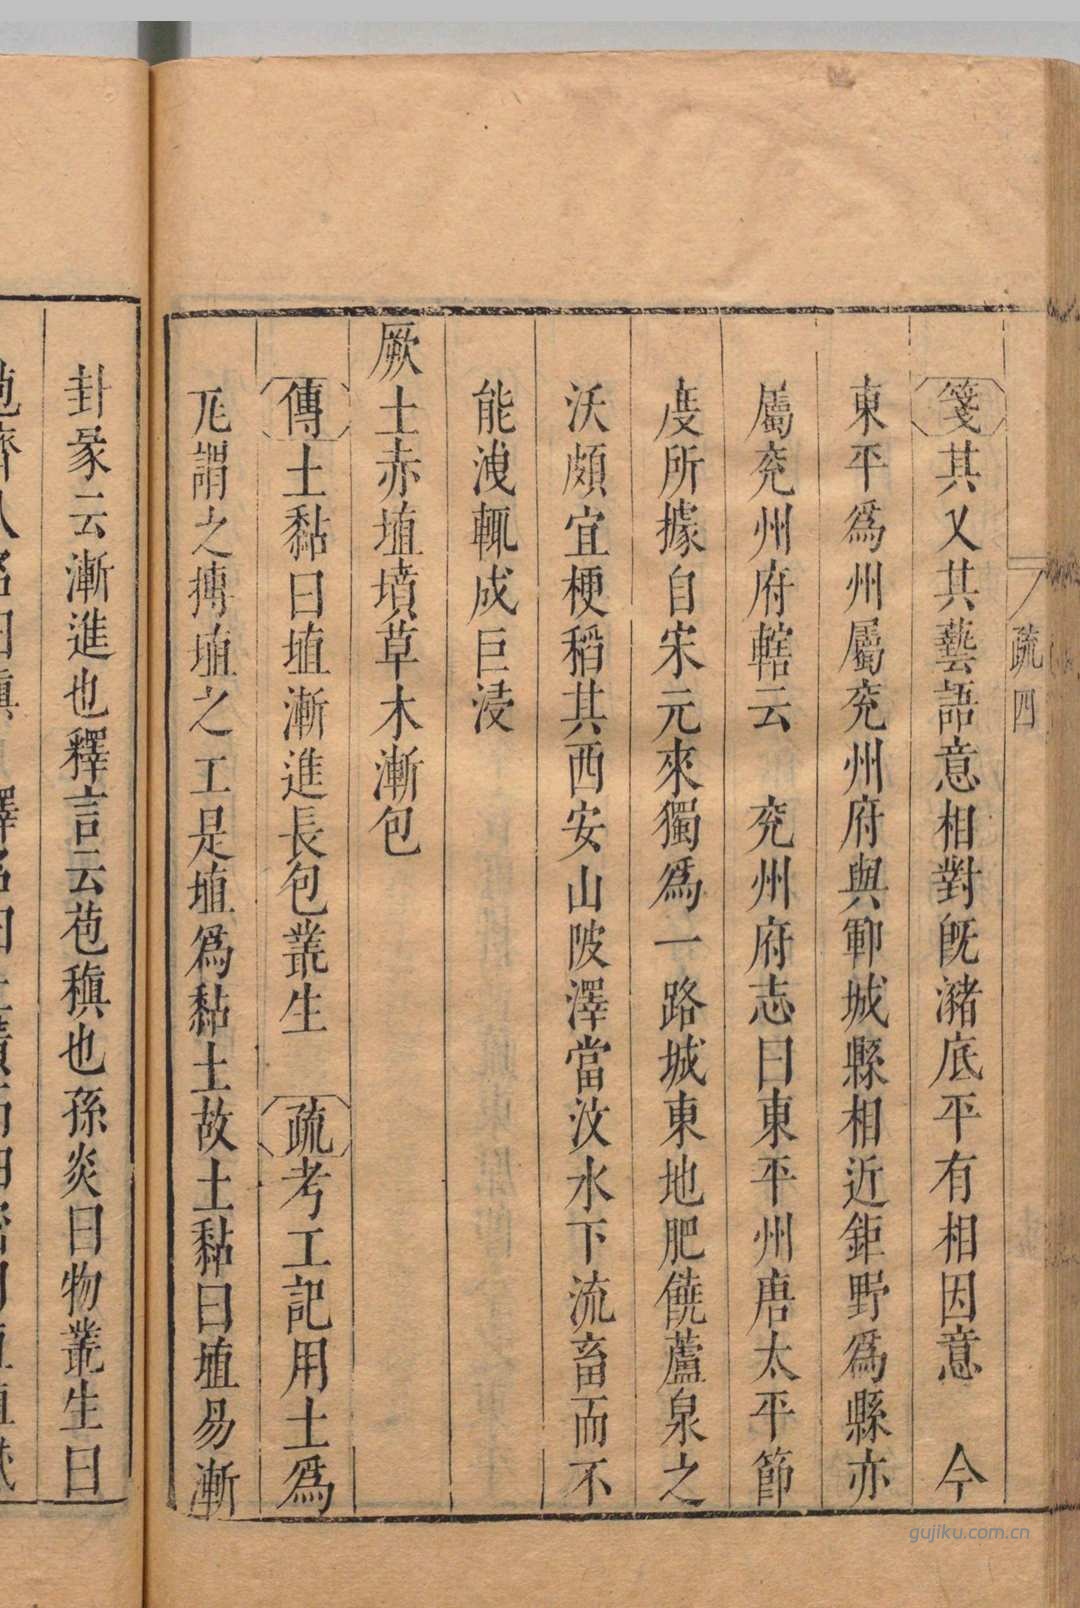 疏四
箋其乂其藝語意相對旣瀦底平有相因意　今
東平爲州屬兗州府與鄆城縣相近鉅野爲縣亦
屬兗州府轄云　兗州府志曰東平州唐太平節
度所據自宋元來獨爲一路城東地肥饒蘆泉之
沃頗宜梗稻其西安山陂澤當汶水下流畜而不
能洩輒成巨浸
厥土赤埴墳草木漸包
傳土黏曰埴漸進長包叢生　疏考工記用土爲
謂之摶埴之工是埴爲黏土故土黏曰埴易漸
封彖云漸進也釋言云苞稹也孫炎曰物叢生曰
gujiku.com.cn